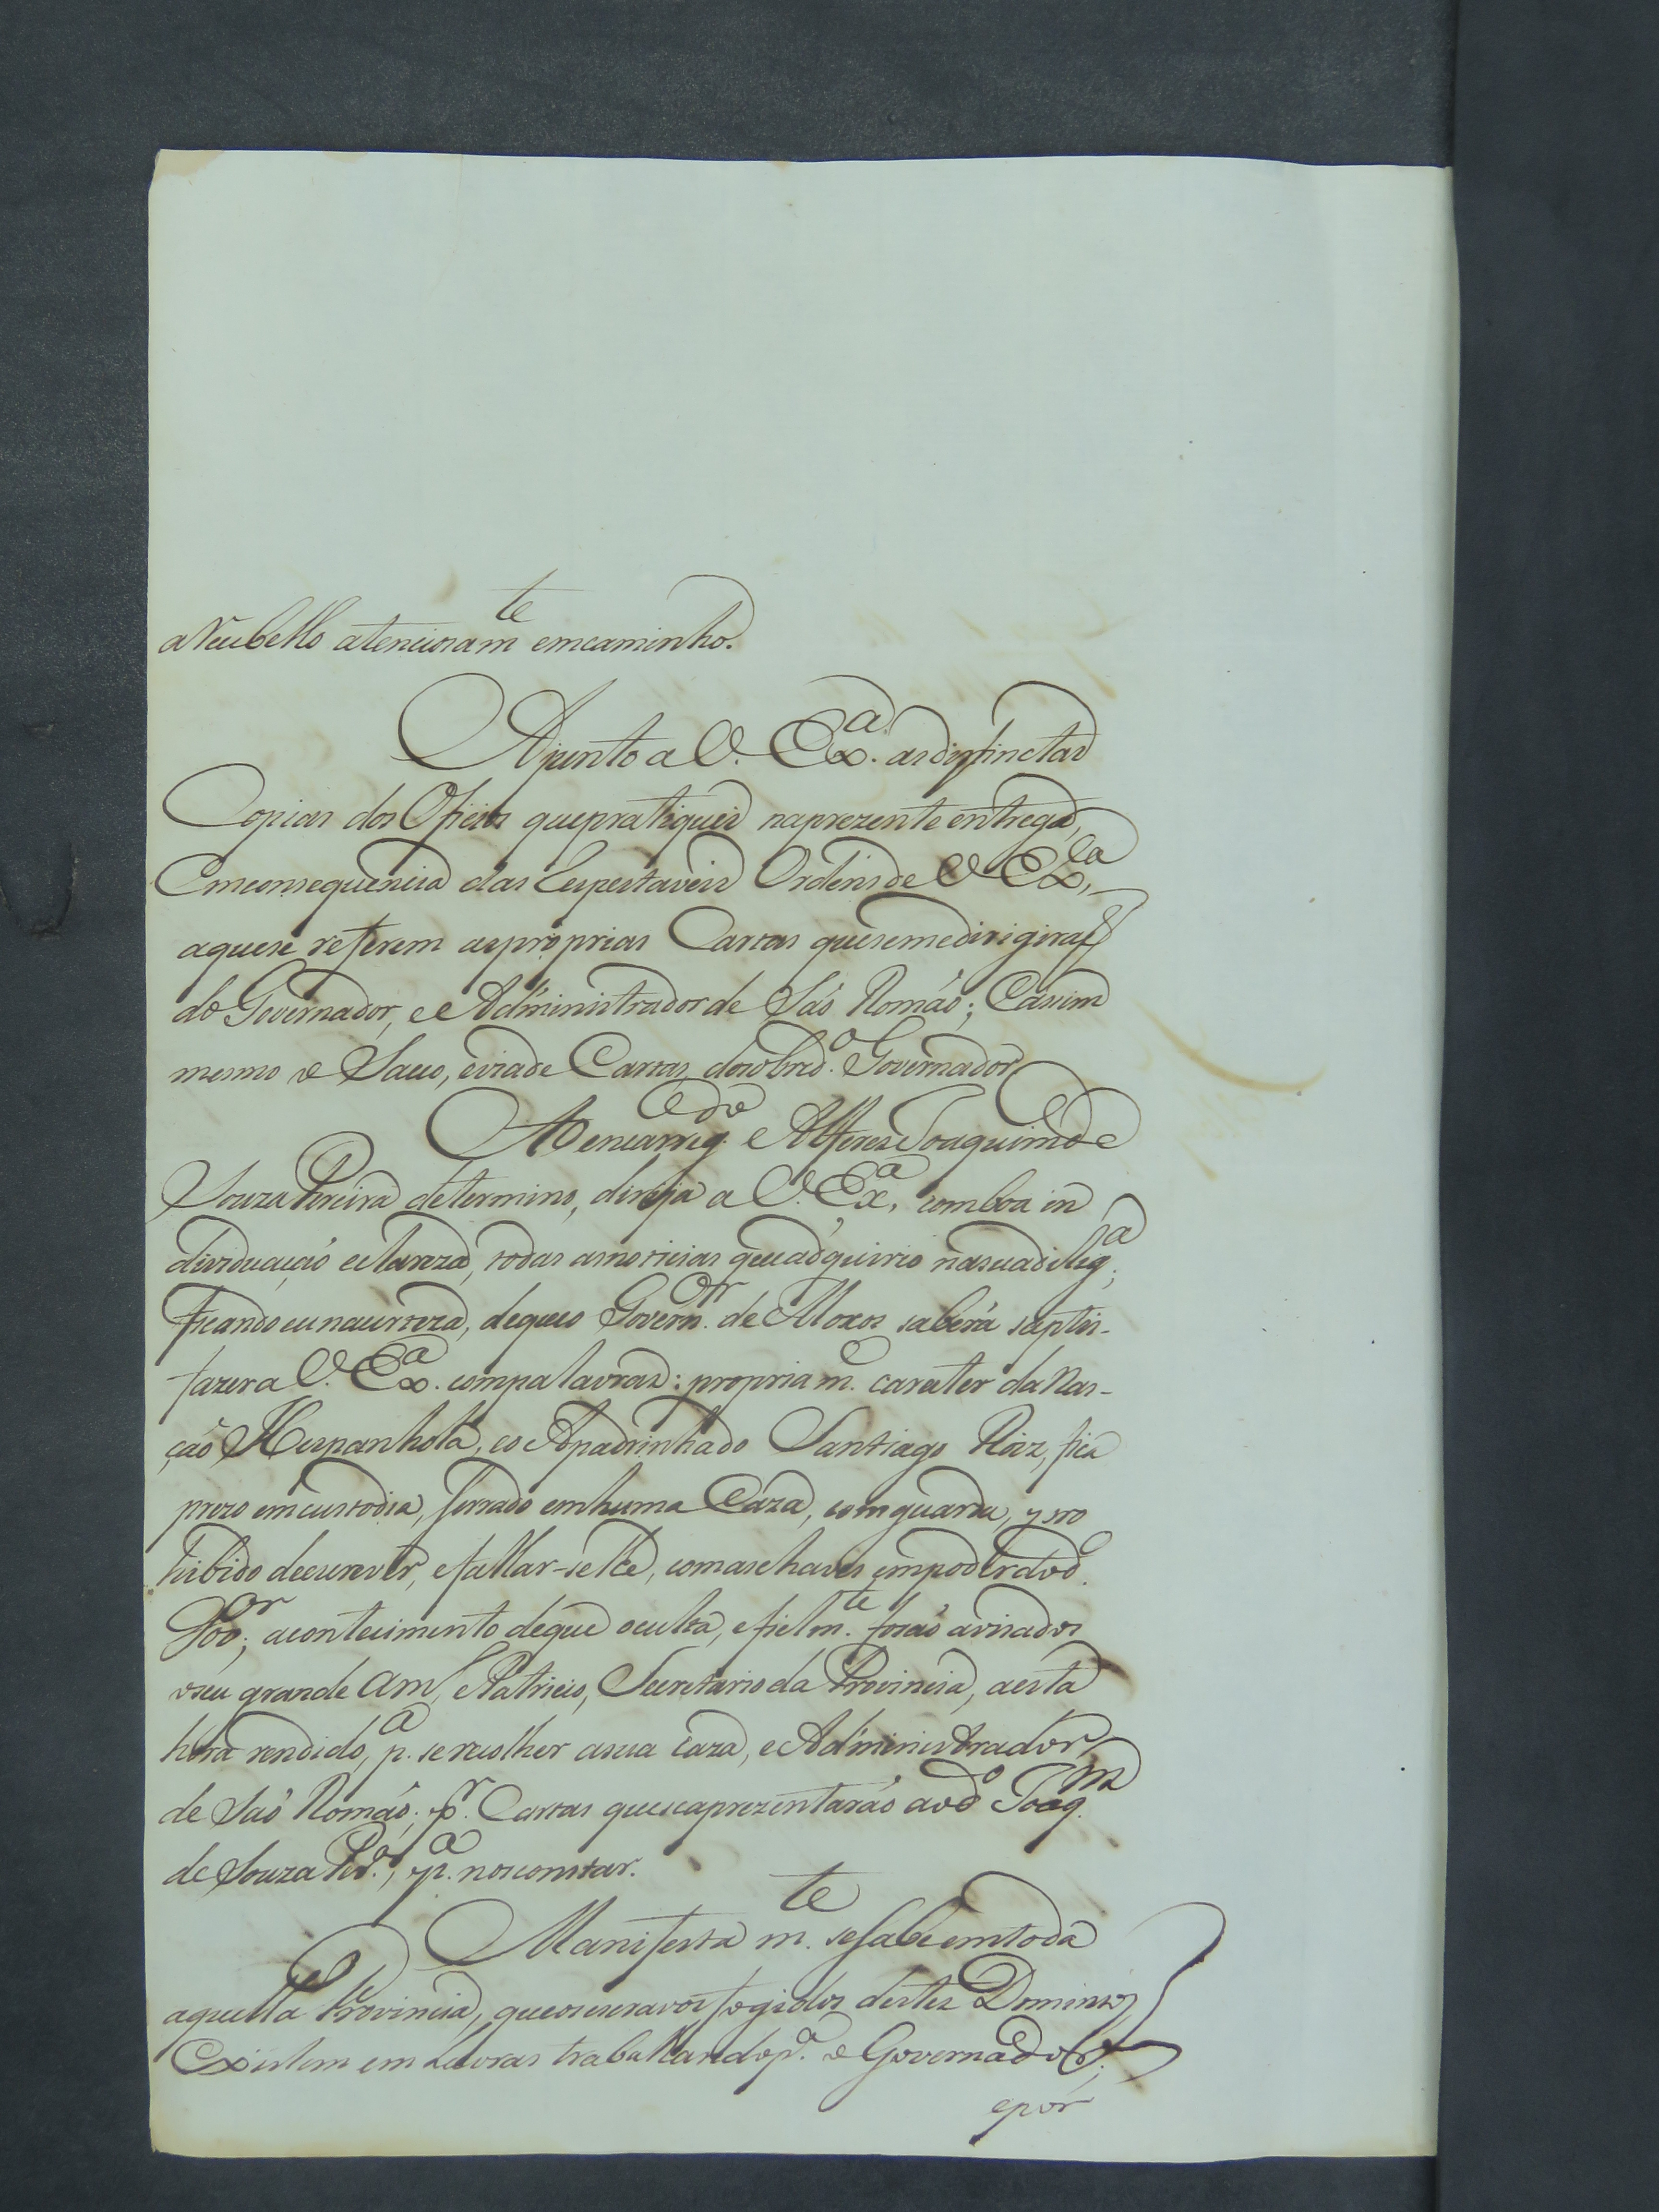 atencionam.te emcaminho.
Ajunto a V. Ex.a as distinctas
Copias dos Oficios que pratiquei na prezente entrega,
Em consequencia das Respeitaveis Ordens de V Ex.ca,
a que se referem as proprias Cartas que se me dirigiraõ
do Governador, e Administrador de Saõ Romaõ; E assim
mesmo o Saco, de Cartas do sobred.o Governador
Ao encarreg.do e Alferes Joaquim de
Souza Pereira determino, dirija a V. Ex.a, com boa in
dividuaçaõ e clareza, todas as noticias que adquirio na sua dilig.a;
ficando eu na certeza, de que o Govern.or de Moxos saberá saptis-
fazer a V. Ex.a com palavras: propriam.e carater da Nas-
çaõ Hespanhola, e o Apadrinhado Santiago Roiz, fica
prezo em custodia, serrado em huma Caza, com guarda, y pro
hibido de escrever, e fallar-se lhe, com as chaves em poder do d.o
Gov.or; acontecimento de que oculta, e fielm.te foraõ avisados
o seu grande Am.o, e Patricio, Secretario da Provincia, a esta
hora rendido, p.a se recolher a sua caza, e Administrador
de Saõ Romaõ; p.r Cartas que se aprezentaraõ ao d.o Joaq.m
de Souza Per.a, p.a nos constar.
Manifestam.te se sabe em toda
aquella Provincia, que os escravos fogidos destes Dominios
Existem em Lavras trabalhando p.a o Governador;
e por